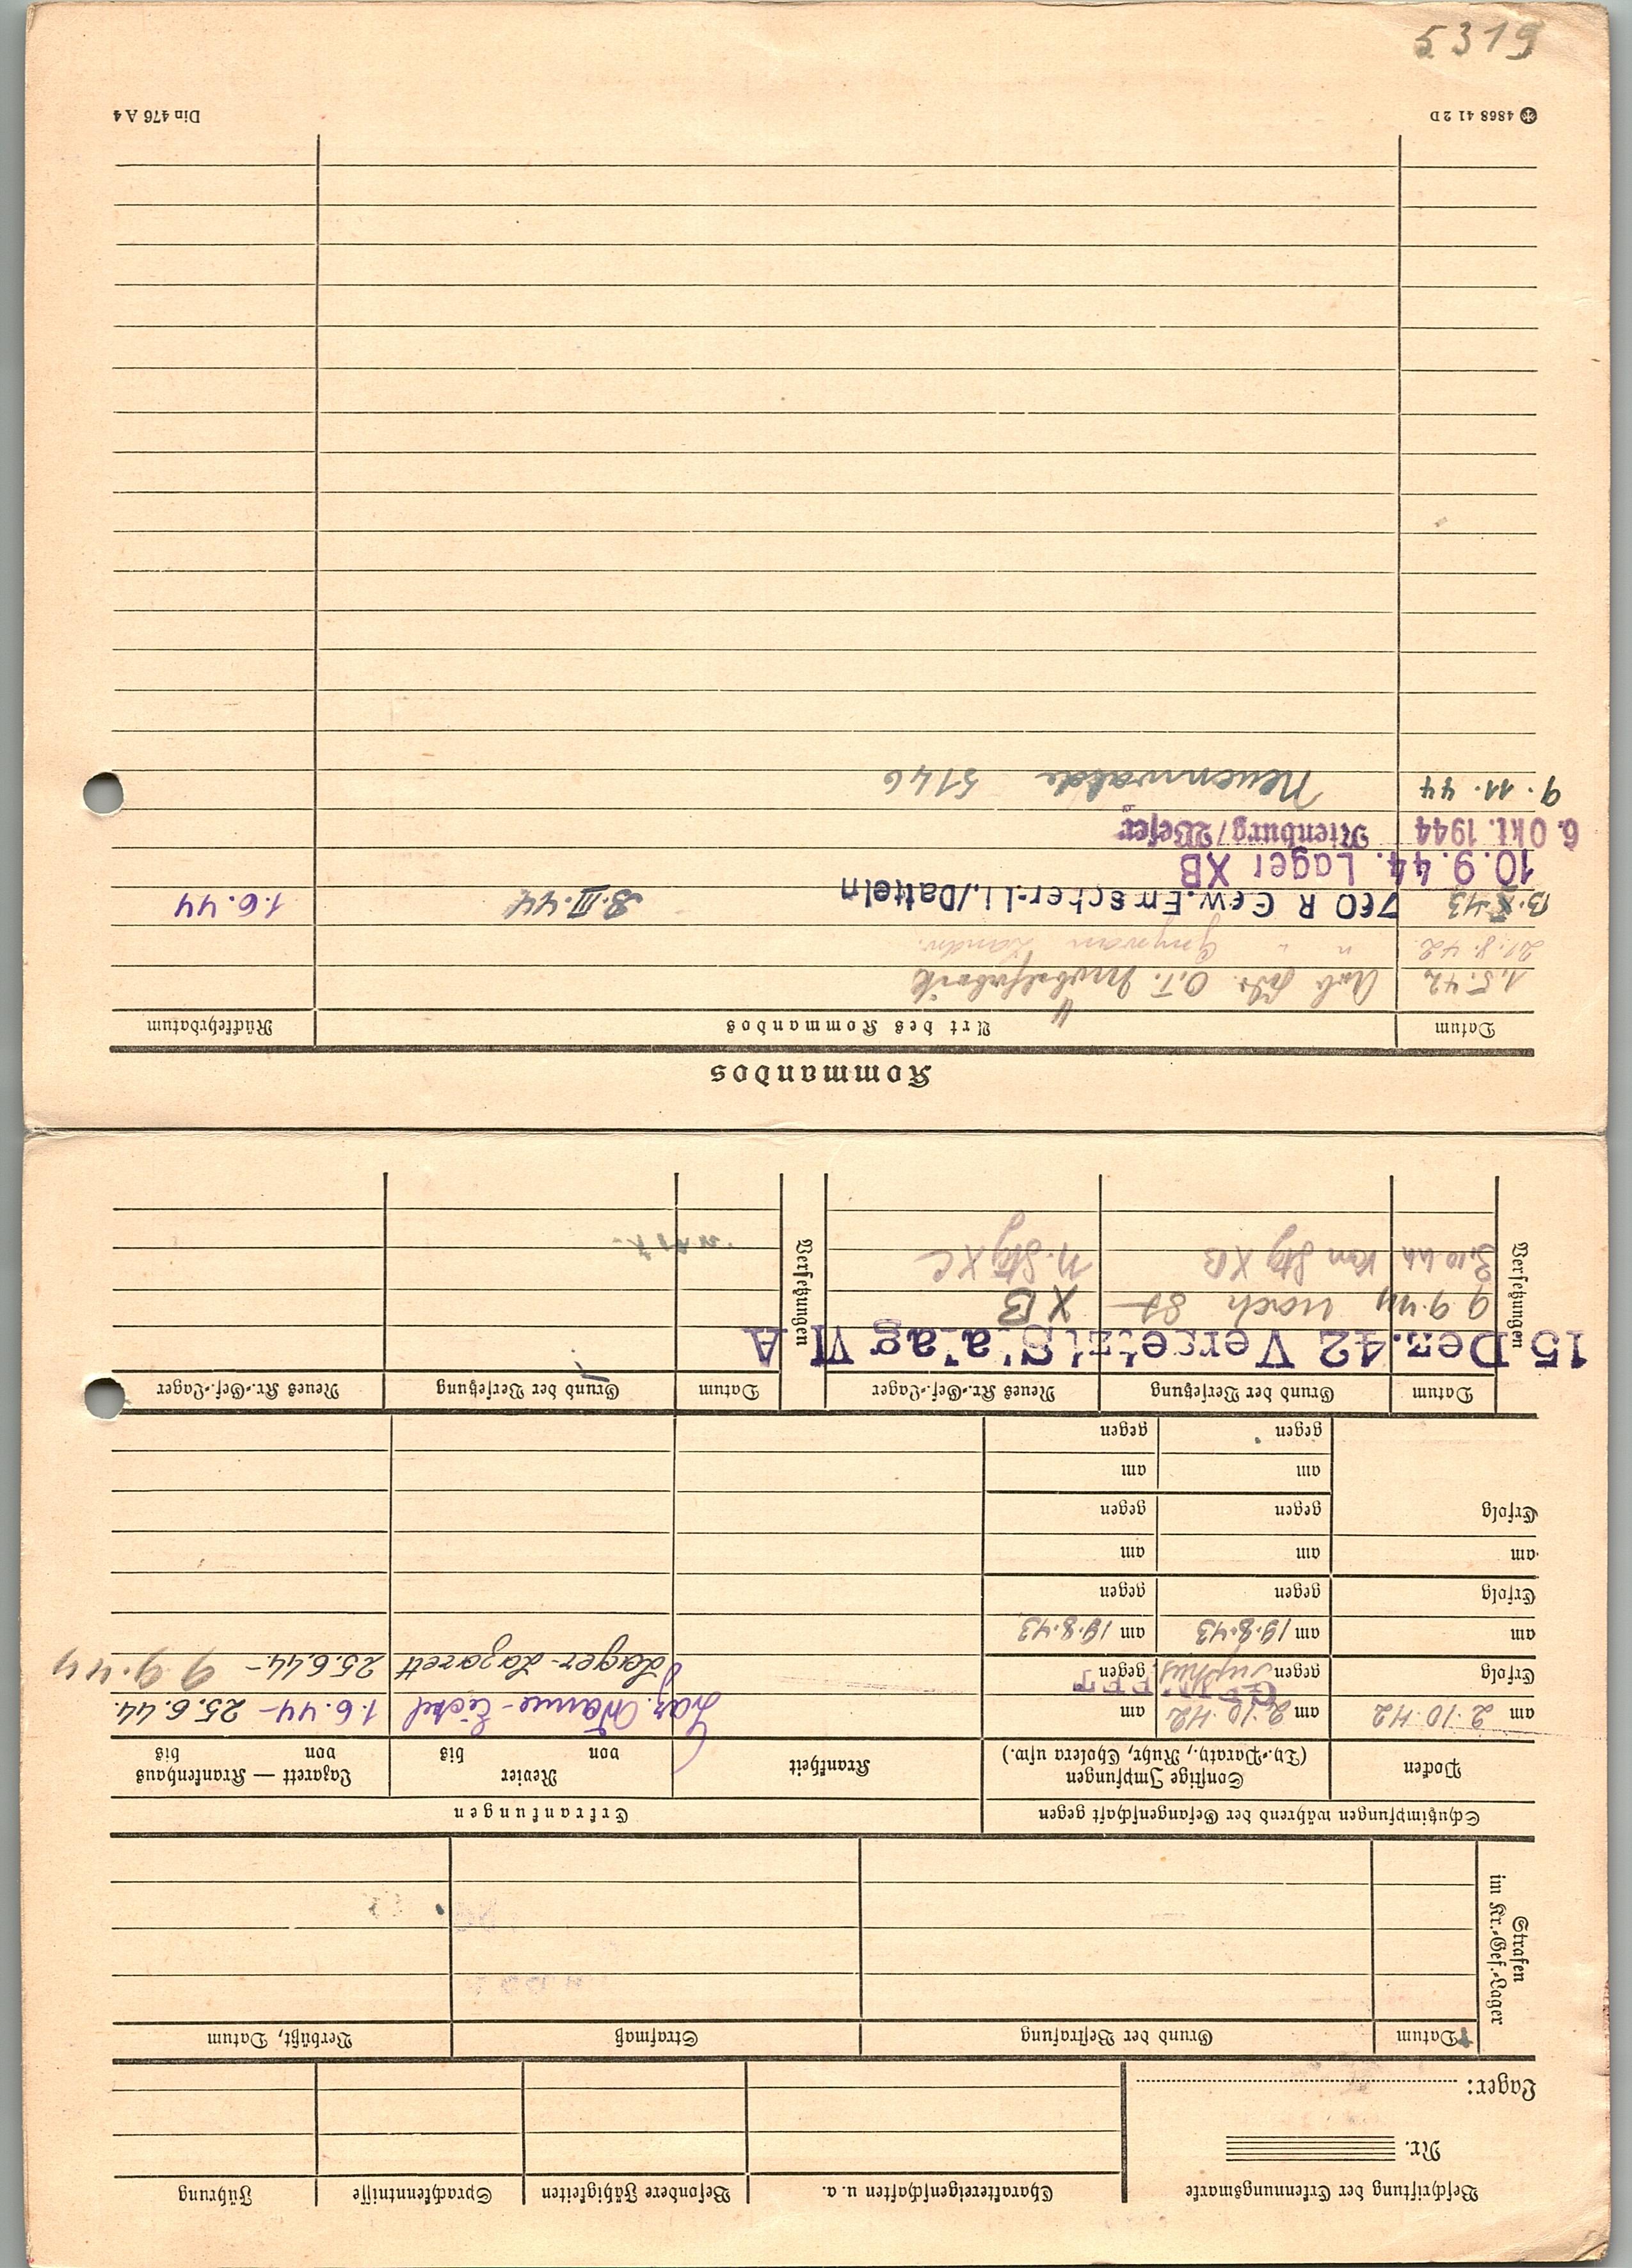 Beschriftung der Erkennungsmarke
Nr.
Lager:
Charaktereigenschaften u. a.
Besondere Fähigkeiten
Sprachkenntnisse
Führung
Strafen im Kr.-Gef.-Lager
Datum
Grund der Bestrafung
Strafmaß
Verbüßt, Datum
Schutzimpfungen während der Gefangenschaft gegen
Erkrankungen
Pocken
Sonstige Impfungen
(Ty.-Paraty., Ruhr, Cholera usw.)
Krankheit
Revier
von bis
Lazarett — Krankenhaus
von bis
am 2.10.42
am 2.10.42
am
Laz. Wanne-Eickel 1.6.44 – 25.6.44.
Erfolg
gegen Typhus
gegen
GEIMPFT
Lager-Lazarett 25.6.44 – 9.9.44
am
am 19.8.43
am 19.8.43
Erfolg
gegen
gegen
am
am
am
Erfolg
gegen
gegen
am
am
gegen
gegen
Versetzungen
Datum
Grund der Versetzung
Neues Kr.-Gef.-Lager
Versetzungen
Datum
Grund der Versetzung
Neues Kr.-Gef.-Lager
15 Dez. 42 Versetzt Stalag VI A
9.9.44 nach St XB
3.10.44 von Stg XB n. Stg XC
Kommandos
Datum
Art des Kommandos
Rückkehrdatum
1.5.42 O.T.
21.8.42 " "
13.X.43 760 R Gew. Emscher-Li./Datteln 8.III.44 1.6.44
10.9.44. Lager XB
6. Okt. 1944 Nienburg/Weser
9.11.44 Neuenwalde 5146
4868 41 2D
Din 476 A 4
5319